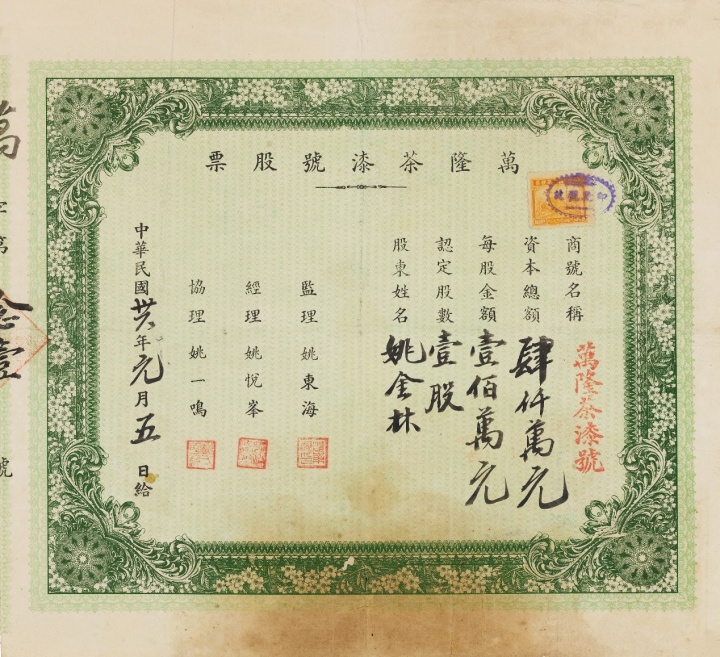 萬隆茶漆號股票
商號名稱 萬隆茶漆號
資本總額 肆仟萬元
每股金額 壹佰萬元
認定股數 壹股
股東姓名 姚金林
監理 姚東海
經理 姚悅峯
協理 姚一鳴
中華民國卅六年元月五日給
萬字第念壹號